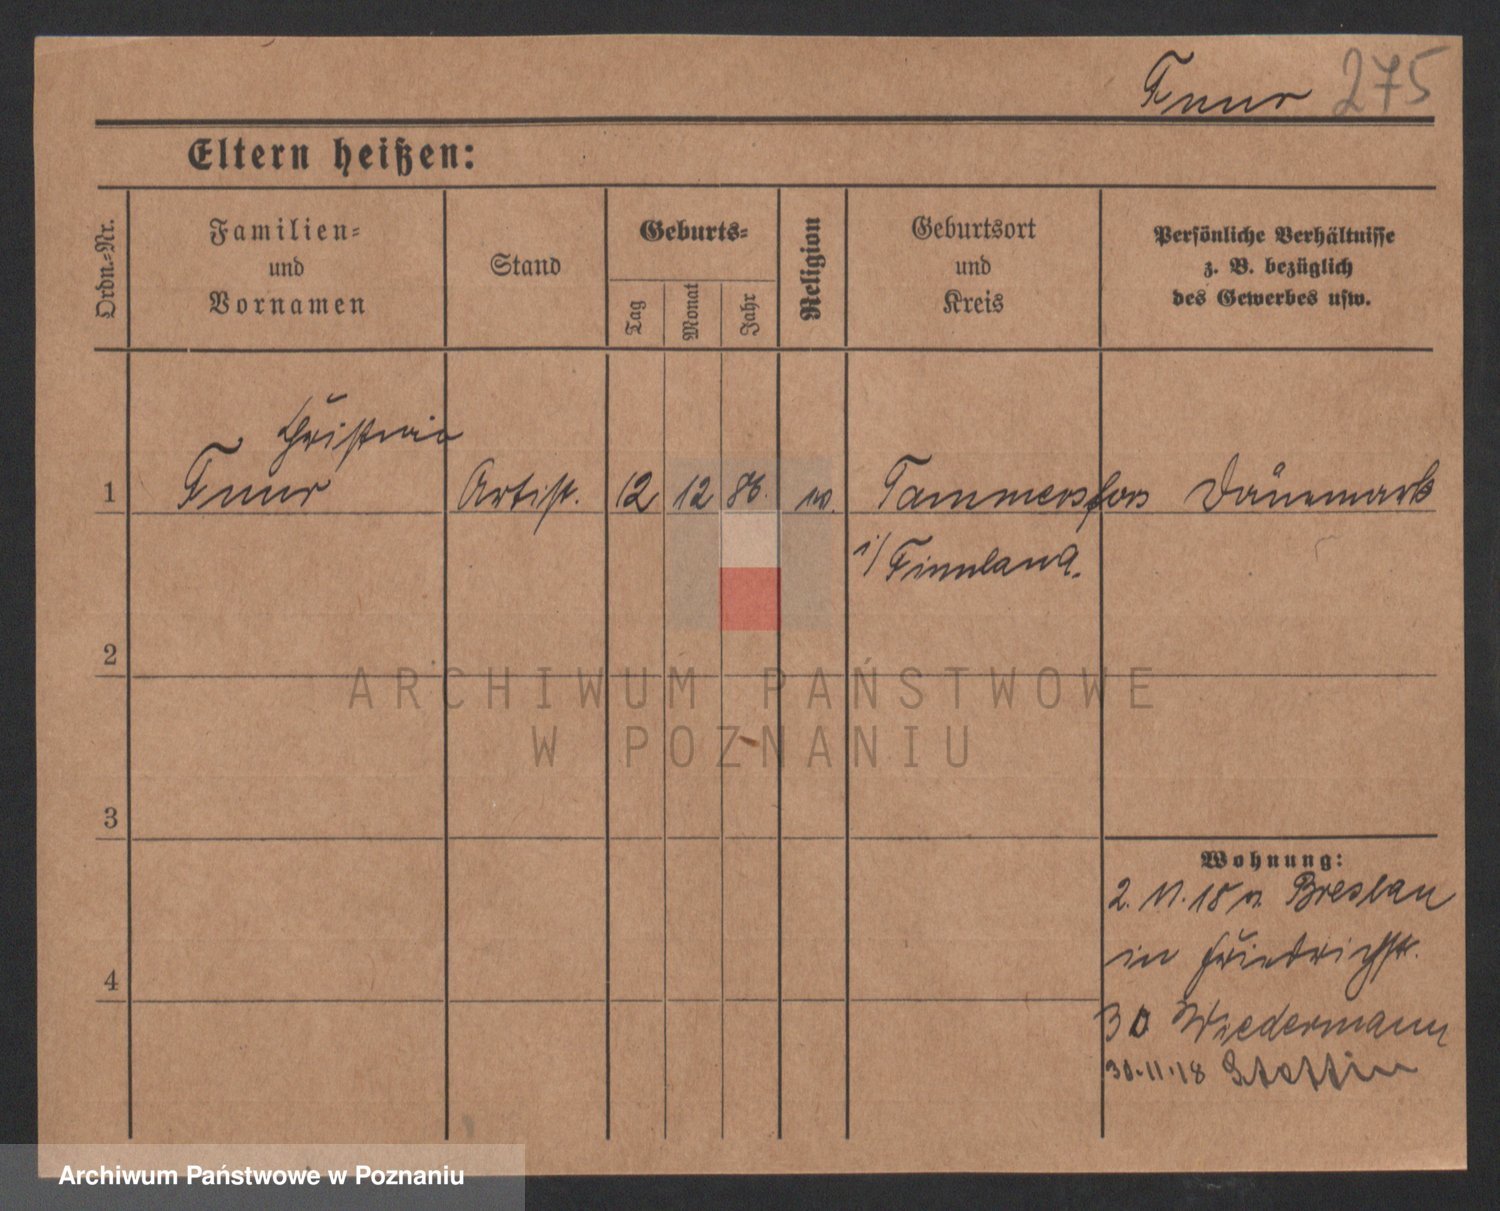 275
Eltern heißen:
Ordn.-Nr.
Familien-
und
Vornamen
Stand
Geburts-
Tag
Monat
Jahr
Religion
Geburtsort
und
Kreis
Persönliche Verhältnisse
z. B. bezüglich
des Gewerbes usw.
1 Artist. 12 12 86. Tammersfors Dänemark
i/ Finnland.
2
3
4
Wohnung:
2. 11. 18 v. Breslau
in Friedrichstr.
30 Wiedermann
30.11.18 Stettin
ARCHIWUM PAŃSTWOWE
W POZNANIU
Archiwum Państwowe w Poznaniu